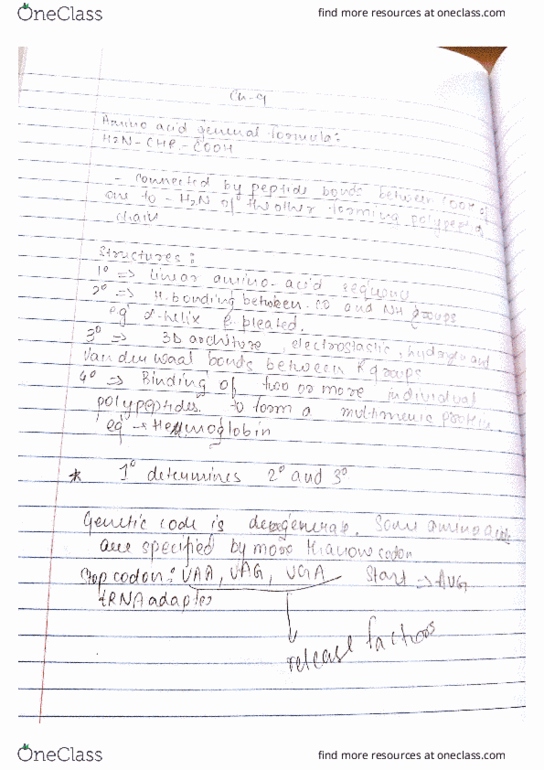 OneClass
find more resources at oneclass.com
Ch-9
Amino acid general formula:
H2N-CHR-COOH
- connected by peptide bonds between COOH of
one to - H2N of the other forming polypeptide
chain
Structures:
1° => linear amino acid sequence
2° => H. bonding between co and NH groups
eg α-helix β pleated.
3° => 3D architure, electrostastic, hydrogen and
Van der waal bonds between R groups
4° => Binding of two or more individual
polypeptides to form a multimeric protein.
eg → Hemmoglobin
* 1° determines 2° and 3°
Genetic code is degenerate. Some amino acids
are specified by more than one codon
Stop codon: UAA, UAG, UGA Start => AUG
tRNA adapter
release factors
OneClass
find more resources at oneclass.com